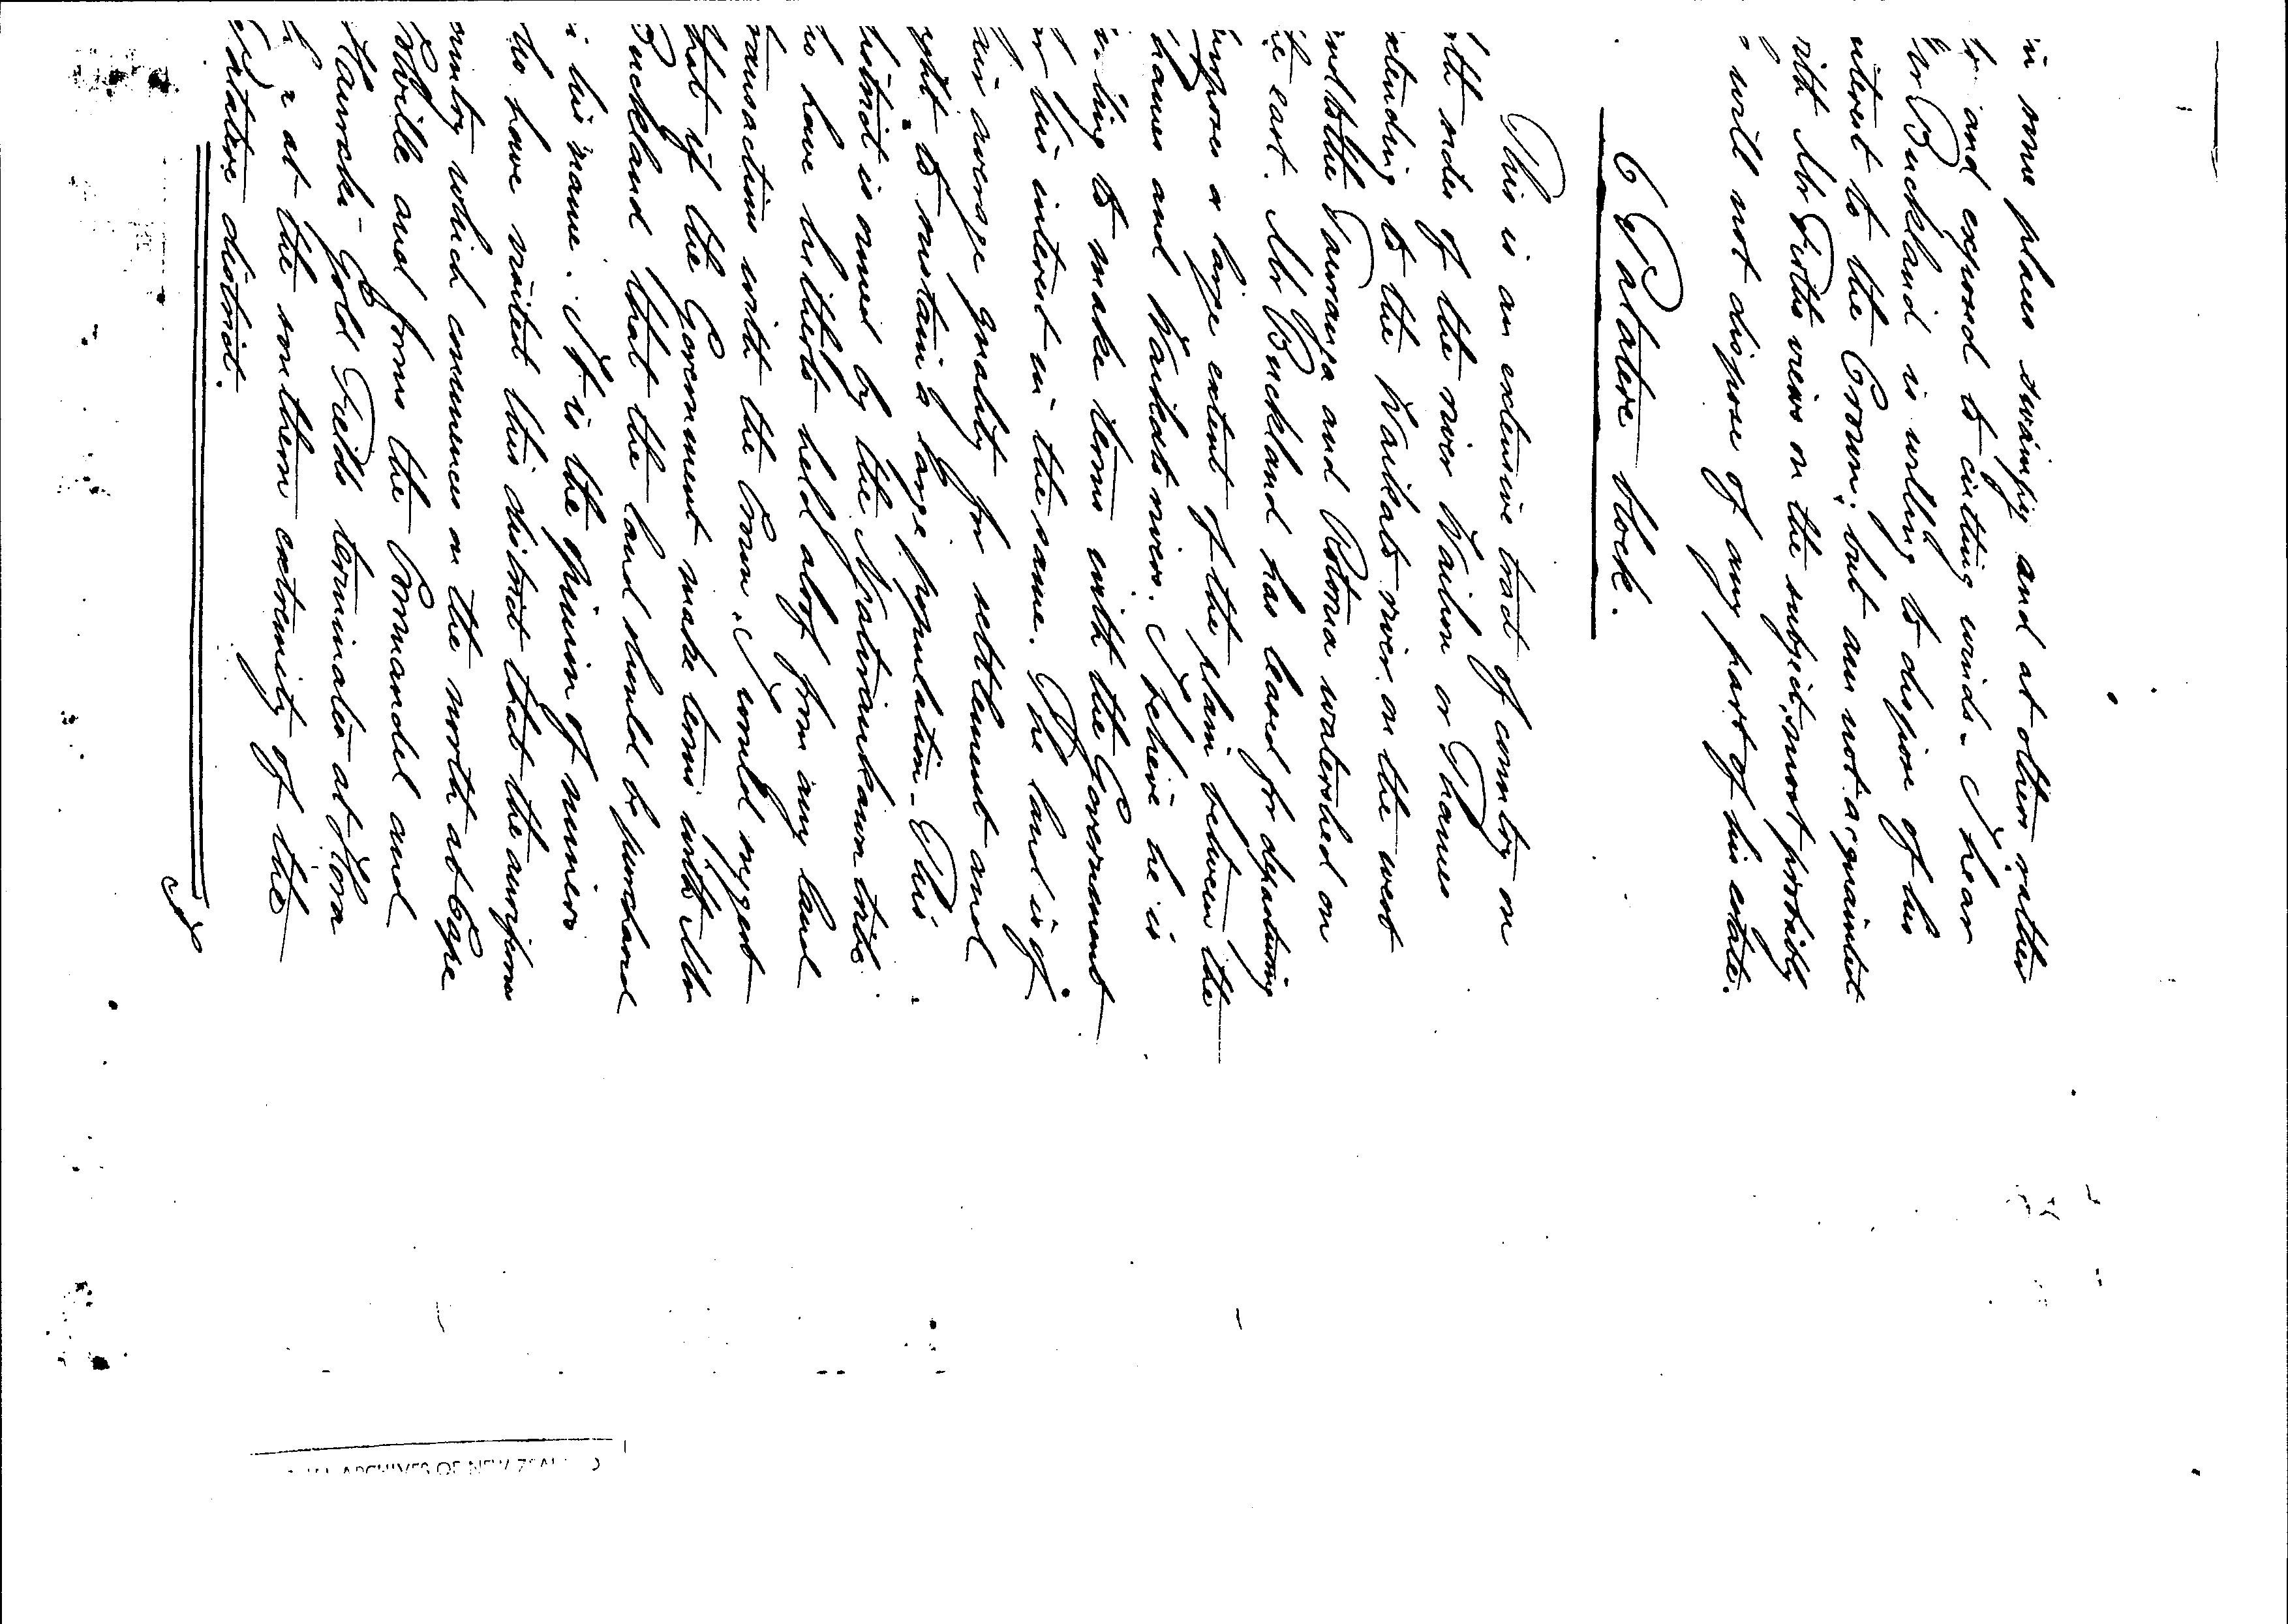 in some places swampy and at others rather
and exposed to cutting winds. I hear
Mr Buckland is willing to dispose of his
interest to the Crown; but am not acquainted
with Mr Firths views on the subject, most probably
will not dispose of any part of his estate.
6 Patatere block.
This is an extensive tract of country on
both sides of the river Waihou or Thames
extending to the Waikato river on the west
and to the Tauranga and Rotorua watershed on
the east. Mr Buckland has leased for depasturing
purposes a large extent of the plain between the
Thames and Waikato rivers. I believe he is
willing to make terms with the Government
for his interest in the same. The land is of
fair average quality for settlement and
ought to sustain a large population. This
district is owned by the Ngatiraukawa tribe
who have hitherto held aloof from any land
transactions with the Crown. I would suggest
that if the Government make terms with Mr
Buckland that the land should be purchased
in his name. It is the opinion of miners
who have visited this district that the auriferous
country which commences on the north at Cape
Colville and forms the Coromandel and
Hauraki Gold Fields terminates at Hora
at the southern extremity of the
Patatere district.
ARCHIVES OF NEW ZEAL